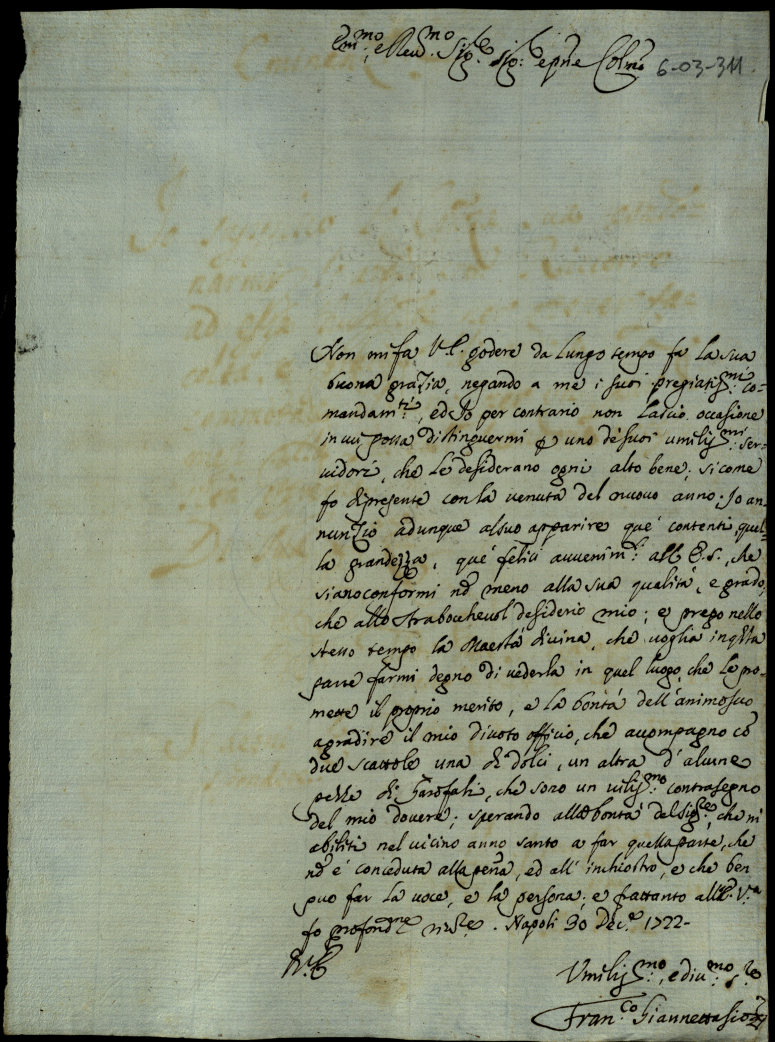 Em.mo e Reu.mo Sig.re Sig.re e pne Colmo 6-03-311.
Non mi fa V.E. godere da lungo tempo fa la sua
buona grazia, negando a me i suoi pregiatiss.mi co-
mandam.ti, ed Io per contrario non lascio occasione
in cui possa distinguermi p uno de' suoi umiliss.mi ser-
uidori, che le desiderano ogni alto bene; sicome
fo di presente con la uenuta del nuouo anno. Io an-
nunzio adunque al suo apparire que' contenti, quel-
la grandezza, que' felici auuenim.ti all'E.S., che
siano conformi nō meno alla sua qualità, e grado,
che allo straboccheuol desiderio mio; e prego nello
stesso tempo la Maestà diuina, che uoglia in qsta
parte farmi degno di uederla in quel luogo, che le pro-
mette il proprio merito, e la bontà dell'animo suo
agradire il mio diuoto officio, che accompagno cō
due scattole una di dolci, un altra d'alcune
pezze di Garofali, che sono un uiliss.mo contrasegno
del mio douere; sperando alla bontà del Sig.re, che m'
abiliti nel uicino anno santo a far quella parte, che
nō è conceduta alla penna, ed all'inchiostro, e che ben
puo far la uoce, e la persona; e frattanto all'E.V.a
fo profond.me riu.ze. Napoli 30 Dec.e 1722-
Umiliss.mo, e diu.mo s.re
Fran.co Giannettasio